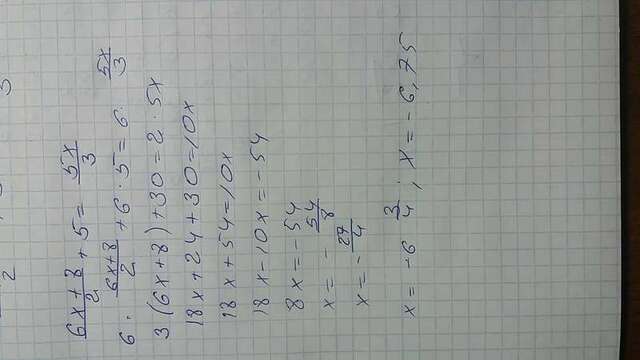 2 3
(6x+8)/2 + 5 = 5x/3
6 · (6x+8)/2 + 6 · 5 = 6 · 5x/3
3(6x+8)+30=2·5x
18x+24+30=10x
18x+54=10x
18x-10x=-54
8x=-54
x= - 54/8
x=- 27/4
x= -6 3/4 ; x=-6,75